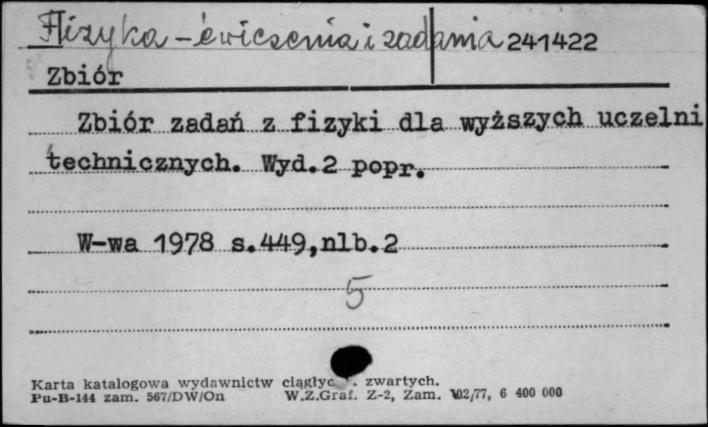 Fizyka - ćwiczenia i zadania 241422
Zbiór
Zbiór zadań z fizyki dla wyższych uczelni
technicznych. Wyd.2 popr.
W-wa 1978 s.449,nlb.2
5
Karta katalogowa wydawnictw ciągłyc . zwartych.
Pu-B-144 zam. 567/DW/On W.Z.Graf. Z-2, Zam. 102/77, 6 400 000